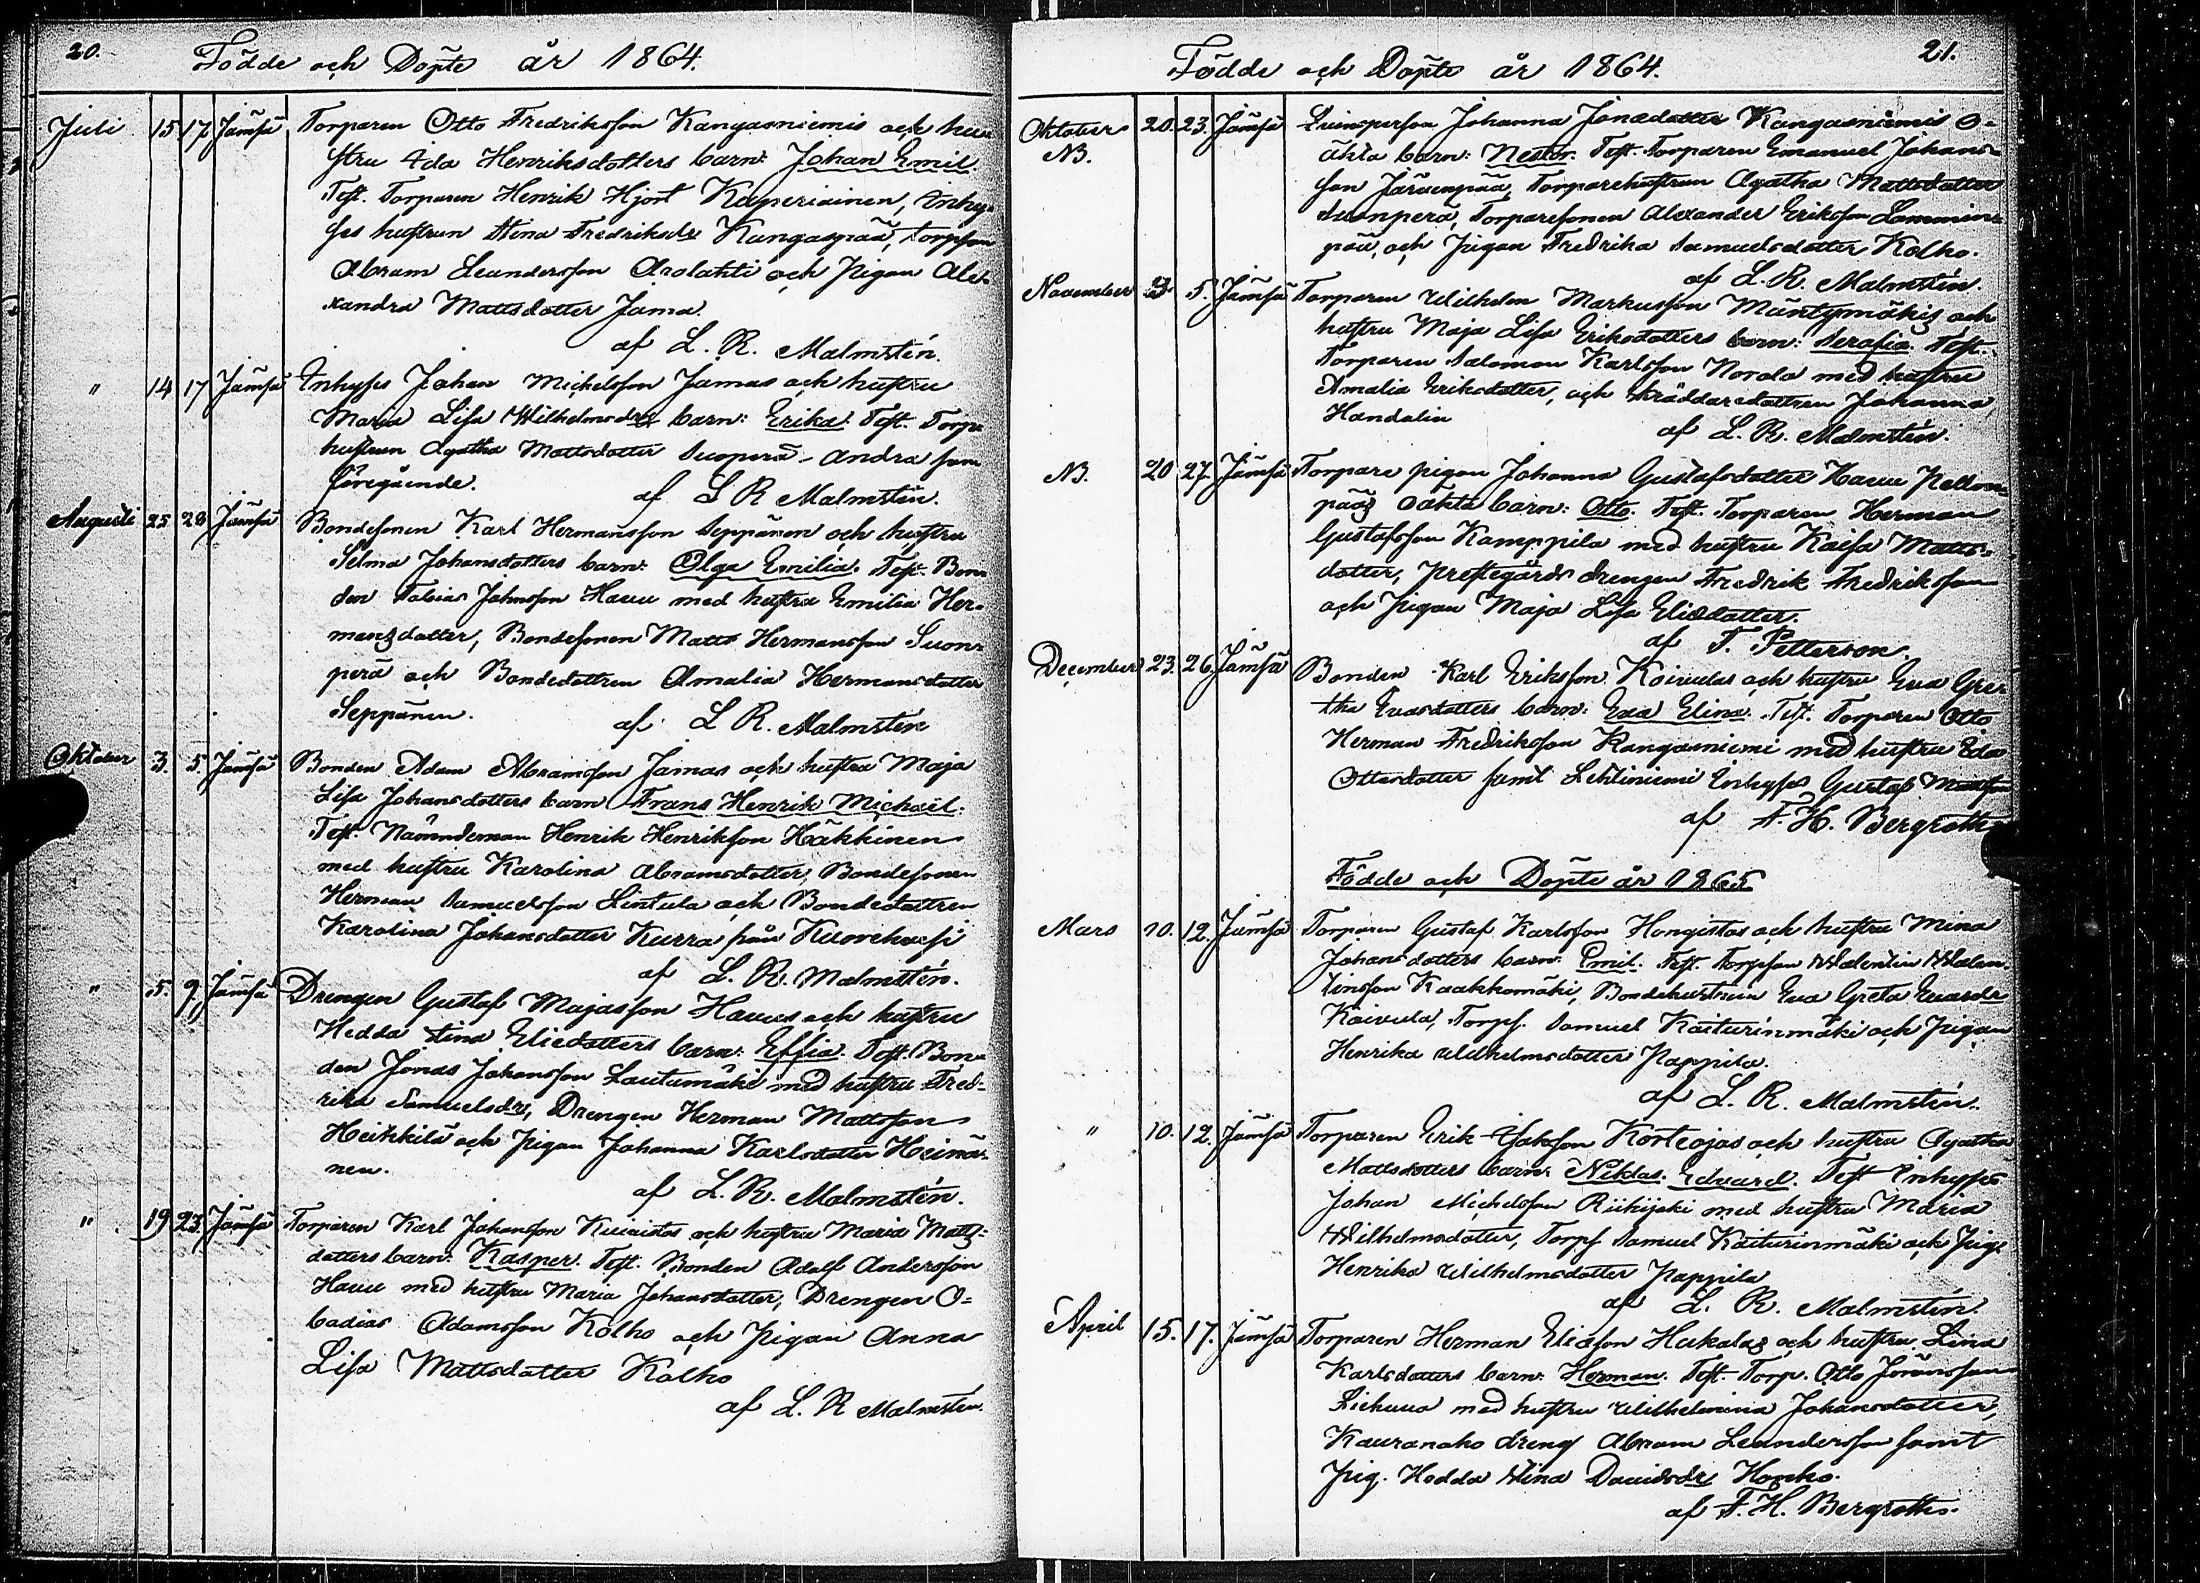 20.
Födde och Döpte år 1864.
Juli 15 17. Jämsä Torparen Otto Fredriksson Kangasniemis och hu-
stru Ida Henriksdotters barn: Johan Emil.
Test. Torparen Henrik Hjort Kaperiainen, Inhy-
ses hustrun Stina Fredriksdr Kangaspää, torpson
Abram Leandersson Arolahti och Pigan Ale-
xandra Mattsdotter Jama.
af L. R. Malmstén.
" 14 17 Jämsä Inhyses Johan Michelsson Jamas och hustru
Maria Lisa Wilhelmsdrs barn: Erika. Test. Torp.
hustrun Agatha Mattsdotter Suoperä - andra som
föregående.
af L R Malmstén.
Augusti 25 28 Jämsä Bondesonen Karl Hermansson Seppänen och hustru
Selma Johansdotters barn: Olga Emilia. Test. Bon-
den Tobias Johnsson Hauu med hustru Emilia Her-
mansdotter, Bondesonen Matts Hermansson Suon-
perä och Bondedottren Amalia Hermansdotter
Seppänen.
af L R. Malmstén
Oktober 3. 5 Jämsä Bonden Adam Abramsson Jamas och hustru Maja
Lisa Johansdotters barn Frans Henrik Michaël.
Test. Nämndeman Henrik Henriksson Häkkinen
med hustru Karolina Abramsdotter, Bondesonen
Herman Samuelsson Lintula och Bondedottren
Karolina Johansdotter Kurra från Kuorehvesi
af L. R. Malmstén.
" 5. 9. Jämsä Drengen Gustaf Majasson Hauus och hustru
Hedda Stina Eliedotters barn: Effia. Test. Bon-
den Jonas Johansson Lautamäki med hustru Fred-
rika Samuelsdr, Drengen Herman Mattsson
Heikkilä och Pigan Johanna Karlsdotter Heinä-
nen.
af L. R. Malmstén.
" 19 23. Jämsä Torparen Karl Johansson Kiviaistos och hustru Maria Matts-
dotters barn: Kasper. Test. Bonden Adolf Andersson
Hauu med hustru Maria Johansdotter, Drengen O-
badias Adamsson Kolho och Pigan Anna
Lisa Mattsdotter Kolho
af L. R Malmstén.
21.
Födde och Döpte år 1864.
Oktober 20. 23. Jämsä Qvinsperson Johanna Jonædotter Kangasniemis O-
NB. äkta barn: Nestor. Test. Torparen Emanuel Johans-
son Järvenpää, Torparehustrun Agatha Mattsdotter
Suonperä, Torparesonen Alexander Eriksson Lammin-
pää, och Pigan Fredrika Samuelsdotter Kolho.
af L. R. Malmstén.
November 3. 5. Jämsä Torparen Wilhelm Markusson Mäntymäkis och
hustru Maja Lisa Eriksdotters barn: Serafia. Test.
Torparen Salomon Karlsson Norola med hustru
Amalia Eriksdotter, och Skräddaredottren Johanna
Handolin
af L. R. Malmstén.
NB. 20 27. Jämsä Torpare pigan Johanna Gustafsdotter Hauu Pellon-
pääs oäkta barn: Otto. Test. Torparen Herman
Gustafsson Kamppila med hustru Kaisa Matts-
dotter, prestegårds drengen Fredrik Fredriksson
och Pigan Maja Lisa Eliædotter.
af T. Petterson.
December 23. 26. Jämsä Bonden Karl Eriksson Koivulas och hustru Eva Gre-
tha Evasdotters barn: Eva Elina. Test. Torparen Otto
Herman Fredriksson Kangasniemi med hustru Eda
Ottosdotter samt Lehtiniemi Inhyses Gustaf Mattsson
af F. H. Bergroth
Födde och Döpte år 1865
Mars 10. 12. Jämsä Torparen Gustaf Karlsson Hongistos och hustru Mina
Johansdotters barn: Emil. Test. Torpson Walentin Walen-
tinsson Kaakkomäki, Bondehustrun Eva Greta Evasdr
Koivula, Torps. Samuel Kaiturinmäki och Pigan
Henrika Wilhelmsdotter Pappila.
af L. R. Malmstén.
" 10. 12. Jämsä Torparen Erik Jakobsson Korteojas och hustru Agatha
Mattsdotters barn: Niklas Edvard. Test Inhyses
Johan Michelsson Riihijoki med hustru Maria
Wilhelmsdotter, Torps Samuel Kaiturinmäki och Pig.
Henrika Wilhelmsdotter Pappila
af L. R. Malmstén.
April 15. 17. Jämsä Torparen Herman Eliæson Hakalas och hustru Lina
Karlsdotters barn: Herman. Test. Torp. Otto Jöransson
Liehuua med hustru Wilhelmina Johansdotter,
Kauranaho dreng Abram Leandersson samt
Pig. Hedda Stina Davidsdr Honko.
af F. H. Bergroth.